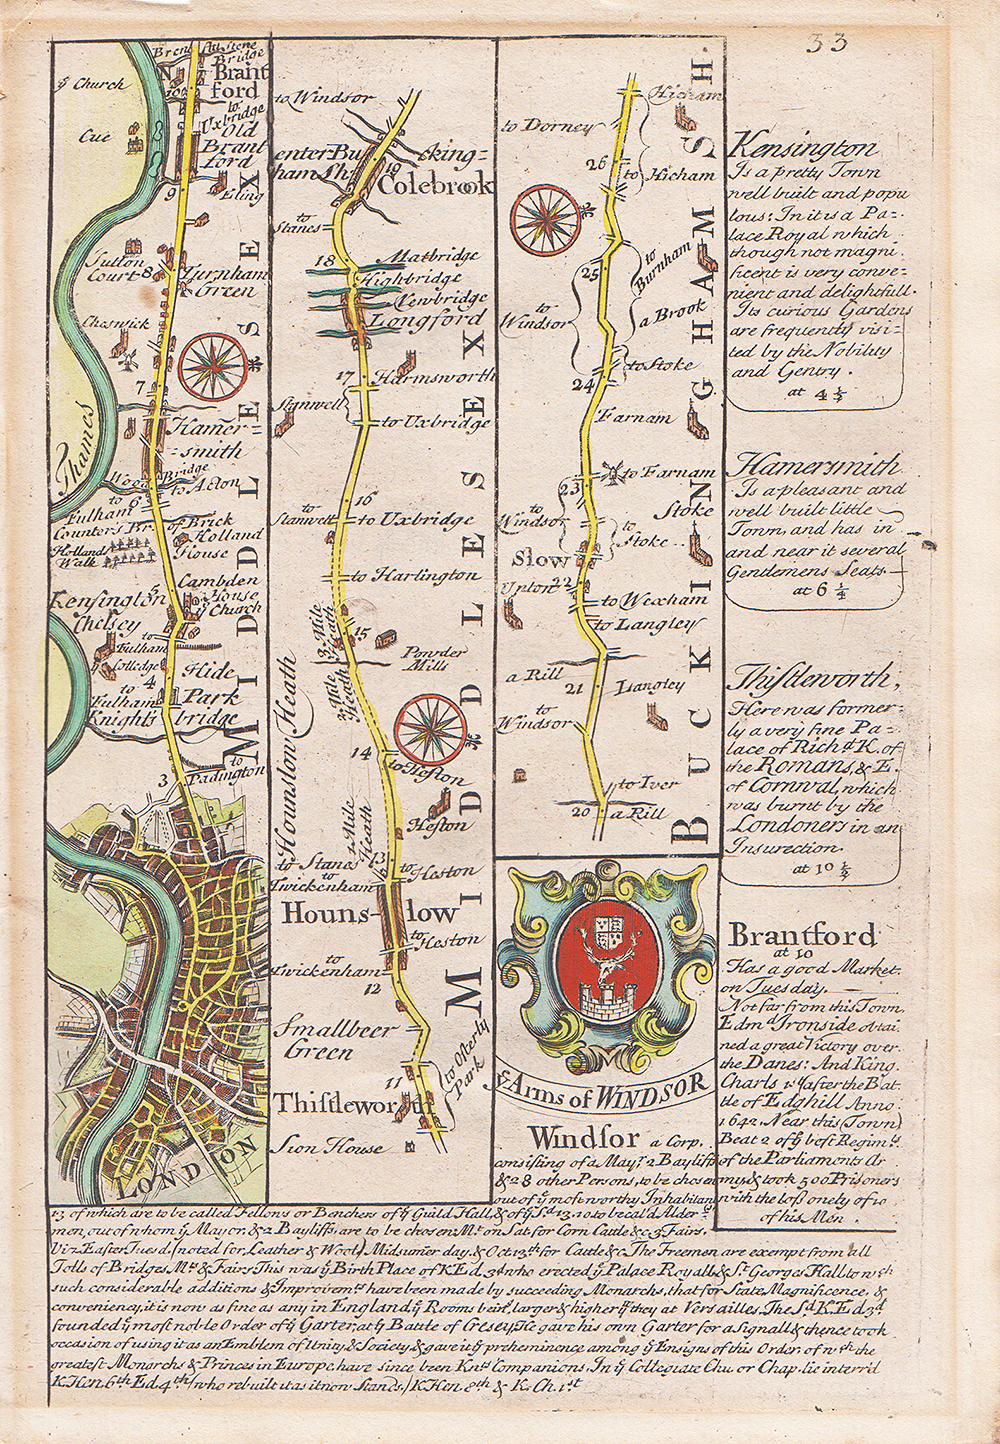 33
Brent
Alt Stone
Bridge
Brant
ford
to
Uxbridge
Old
Brant
ford
Eling
9
10
N
ẏ Church
Cue
Sutton
Court
8
Turnham
Green
Cheswick
7
Hamer=
=smith
Thames
Wood Bridge
to Acton
to
Fulham
6
Counters Br. of Brick
Holland
House
Holland
Walk
Cambden
House
ẏ Church
Kensington
Chelsey
to
Fulham
Colledge
Hide
Park
4
to
Fulham
Knights bridge
3
to
Padington
LONDON
MIDDLESEX
to Windsor
enter Bucking=
ham Sh:
19
Colebrook
to
Stanes
18
Matbridge
Highbridge
Newbridge
Longford
17
Harmsworth
Stanwell
to Uxbridge
16
to
Stanwell
to Uxbridge
to Harlington
3 Mile
Heath
15
Powder
Mills
3 Mile
Heath
Hounslow Heath
14
to Heston
Heston
2 Mile
Heath
to Stanes
to
Twickenham
13
to
Heston
Houns-low
to
Heston
to
Twickenham
12
Smallbeer
Green
11
to Osterly
Park
Thistleworth
Sion House
MIDDLESEX
Hicham
to Dorney
26
to Hicham
to
Burnham
25
to
Windsor
a Brook
to Stoke
24
Farnam
to Farnam
23
Stoke
to
Windsor
to
Stoke
Slow
Upton
22
to Wexham
to Langley
a Rill
21
Langley
to
Windsor
to Iver
20
a Rill
BUCKINGHAMSH.
ẏ Arms of WINDSOR
Kensington
Is a pretty Town
well built and popu
lous: In it is a Pa=
lace Royal which
though not magni
ficent is very conve=
nient and delightfull.
Its curious Gardens
are frequently visi=
ted by the Nobility
and Gentry.
at 4 ½
Hamersmith
Is a pleasant and
well built little
Town, and has in
and near it several
Gentlemens Seats
at 6 ¼
Thistleworth,
Here was former=
ly a very fine Pa=
lace of Richd. K. of
the Romans, & E.
of Cornwal, which
was burnt by the
Londoners in an
Insurection.
at 10 ½
Brantford
at 10
Has a good Market
on Tuesday.
Not far from this Town,
Edmd. Ironside obtai
ned a great Victory over
the Danes: And King
Charls 1st. after the Bat
tle of Edghill Anno
1642. Near this (Town)
Beat 2 of ẏ best Regimts.
of the Parliaments Ar
my & took 500 Prisoners
with the loss onely of 10
of his Men.
Windsor a Corp.
consisting of a Mayr. 2 Bayliffs
& 28 other Persons, to be chosen
out of ẏ most worthy Inhabitants
13 of which are to be called Fellons or Benchers of ẏ Guild Hall, & of ẏ Sd. 13. 10 to be cal'd Alder=
men, out of whom ẏ Mayor, & 2 Bayliffs, are to be chosen Mt. on Sat. for Corn Cattle &c. 3 Fairs.
Viz Easter Tuesd. (noted for Leather & Wool) Midsumer day. & Oct 13th. for Cattle &c. The Freemen are exempt from all
Tolls of Bridges, Mts. & Fairs. This was ẏ Birth Place of K Ed. 3d. who erected ẏ Palace Royall & St. Georges Hall: to wch.
such considerable additions & Improvemts. have been made by succeeding Monarchs, that for State, Magnificence, &
conveniency, it is now as fine as any in England, ẏ Rooms being larger & higher yn. they at Versailles. The Sd. K. Ed 3d.
founded ẏ most noble Order of ẏ Garter, at ẏ Battle of Cresey, He gave his own Garter for a Signall & thence took
occasion of using it as an Emblem of Unity & Society, & gave it ẏ preheminence among ẏ Ensigns of this Order. of wch. the
greatest Monarchs & Princes in Europe, have since been Knts. Companions. In ẏ Collegiate Chu. or Chap. lie interr'd
K. Hen. 6th. Ed. 4th. (who rebuilt it as it now Stands.) K. Hen. 8th. & K. Ch. 1st.